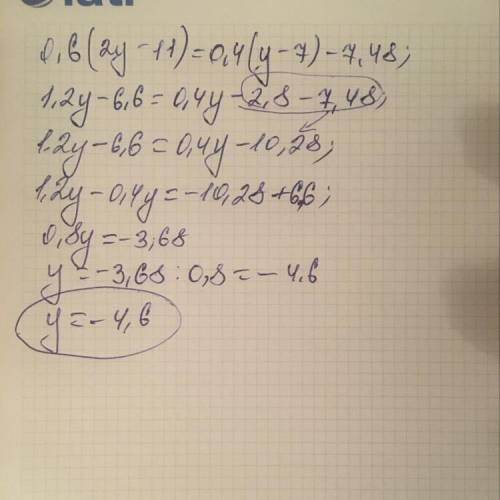 0,6(2y-11)=0,4(y-7)-7,48;
1,2y-6,6=0,4y-2,8-7,48;
1.2y-6,6=0,4y-10,28;
1,2y-0,4y=-10,28+6,6;
0,8y=-3,68
y=-3,68:0,8=-4.6
y=-4,6